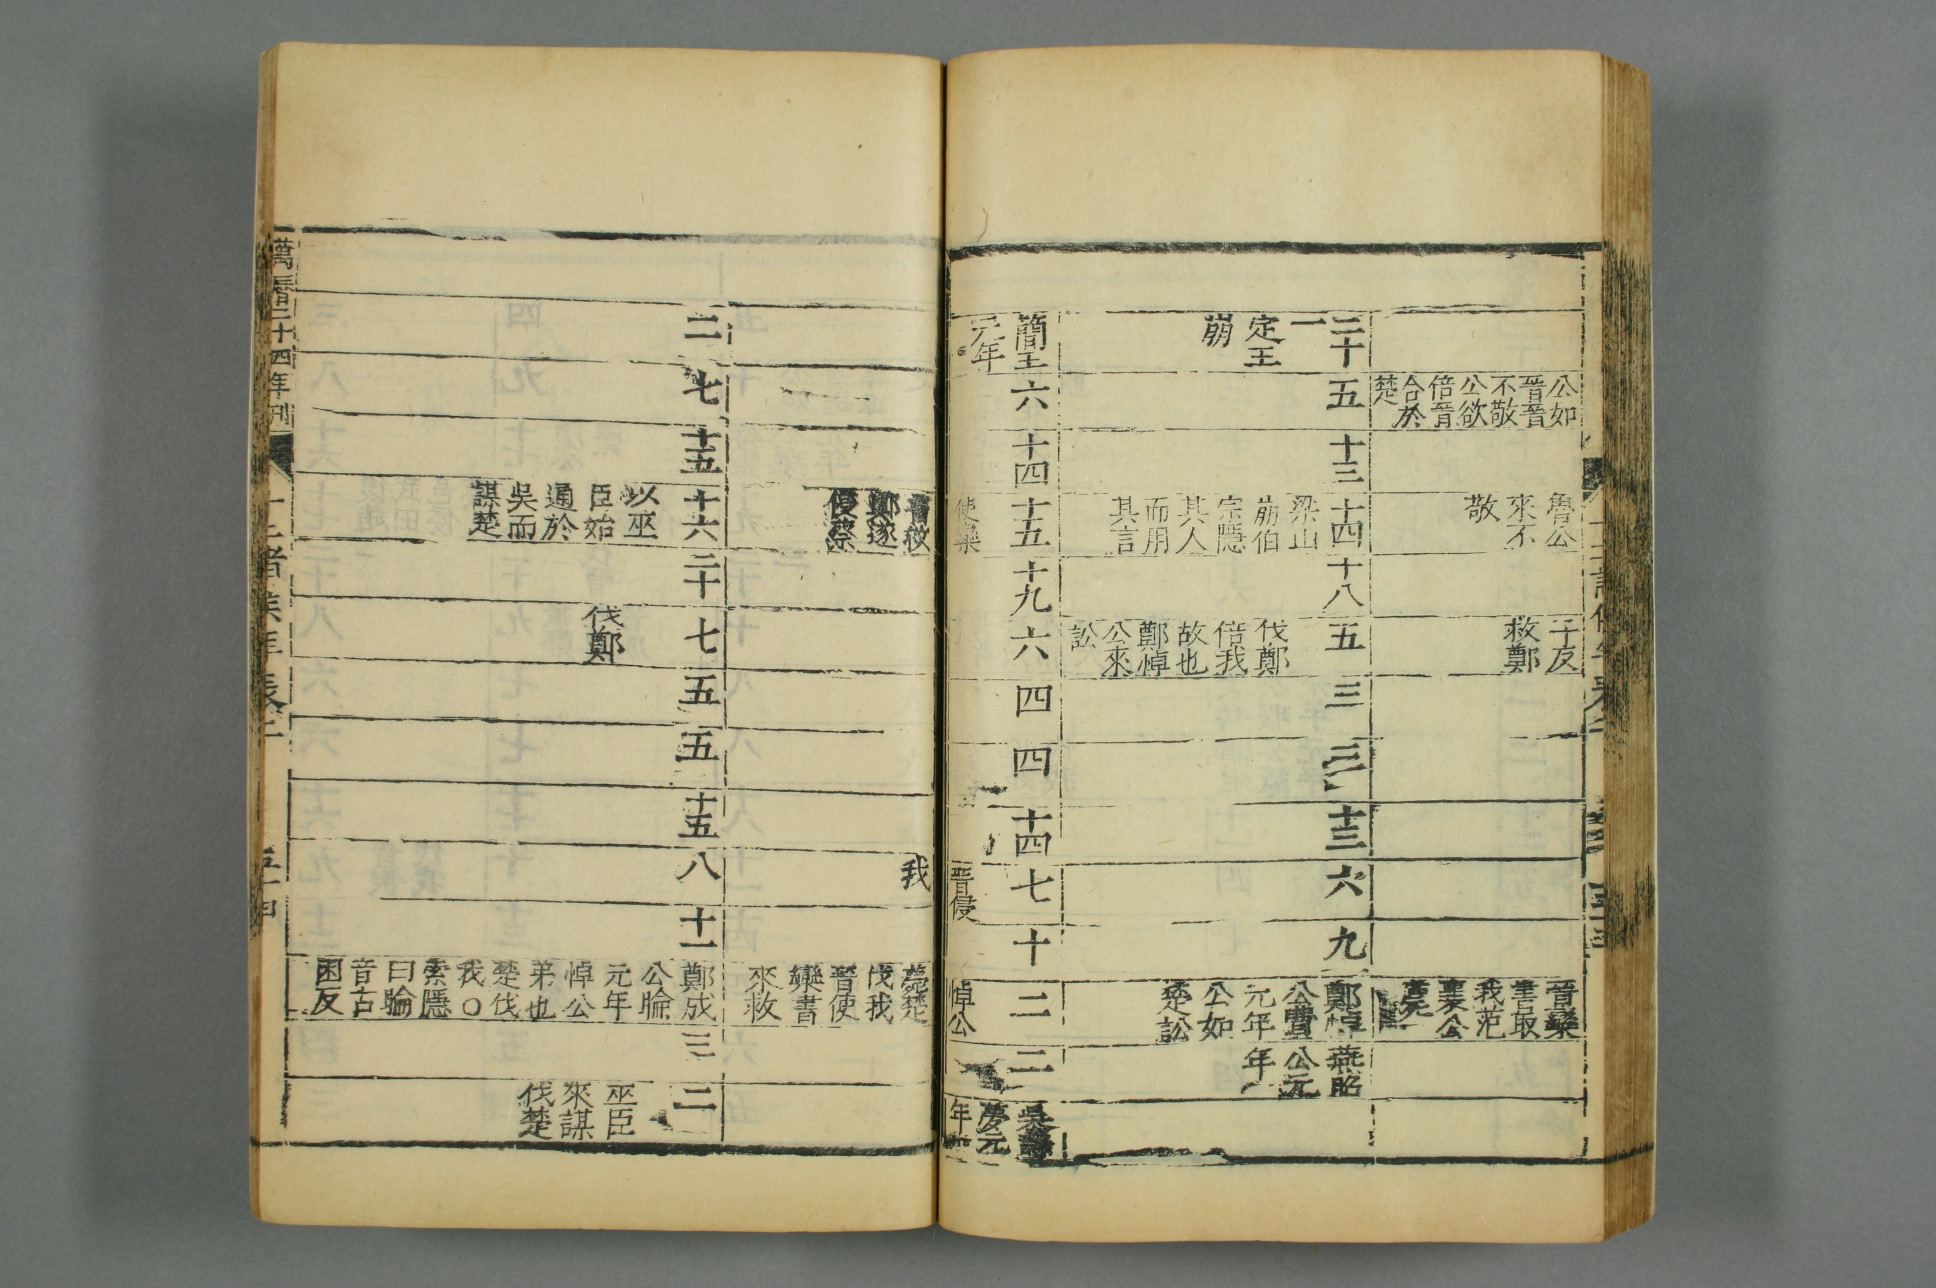 公如
晉晉
不敬
公欲
倍晉
合於
楚
魯公
來不
敬
子反
救鄭
晉欒
書取
我范
襄公
薨
二十
一
定王
崩
五
十三
十四
梁山
崩伯
宗隱
其人
而用
其言
十八
五
伐鄭
倍我
故也
鄭悼
公來
訟
三
三
十三
六
九
鄭悼
公費
元年
公如
楚訟
燕昭
公元
年
簡王
元年
六
十四
十五
使欒
十九
六
四
四
十四
七
晉侵
十
二
悼公
二
吳壽
夢元
年
晉救
鄭遂
侵蔡
我
薨楚
伐我
晉使
欒書
來救
二
七
十五
十六
以巫
臣始
通於
吳而
謀楚
二十
七
伐鄭
五
五
十五
八
十一
鄭成
公睔
元年
悼公
弟也
楚伐
我○
索隱
曰睔
音古
困反
三
二
巫臣
來謀
伐楚
萬曆二十四年刊
十二諸侯年表二
五十四